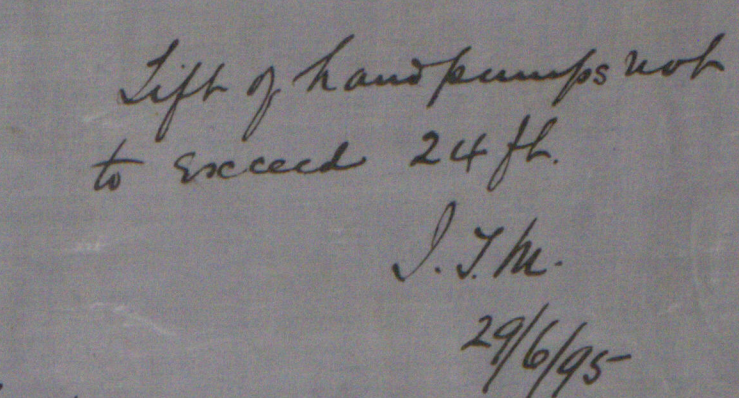 Lift of hand pumps not
to exceed 24 ft.
J.T.M.
29/6/95